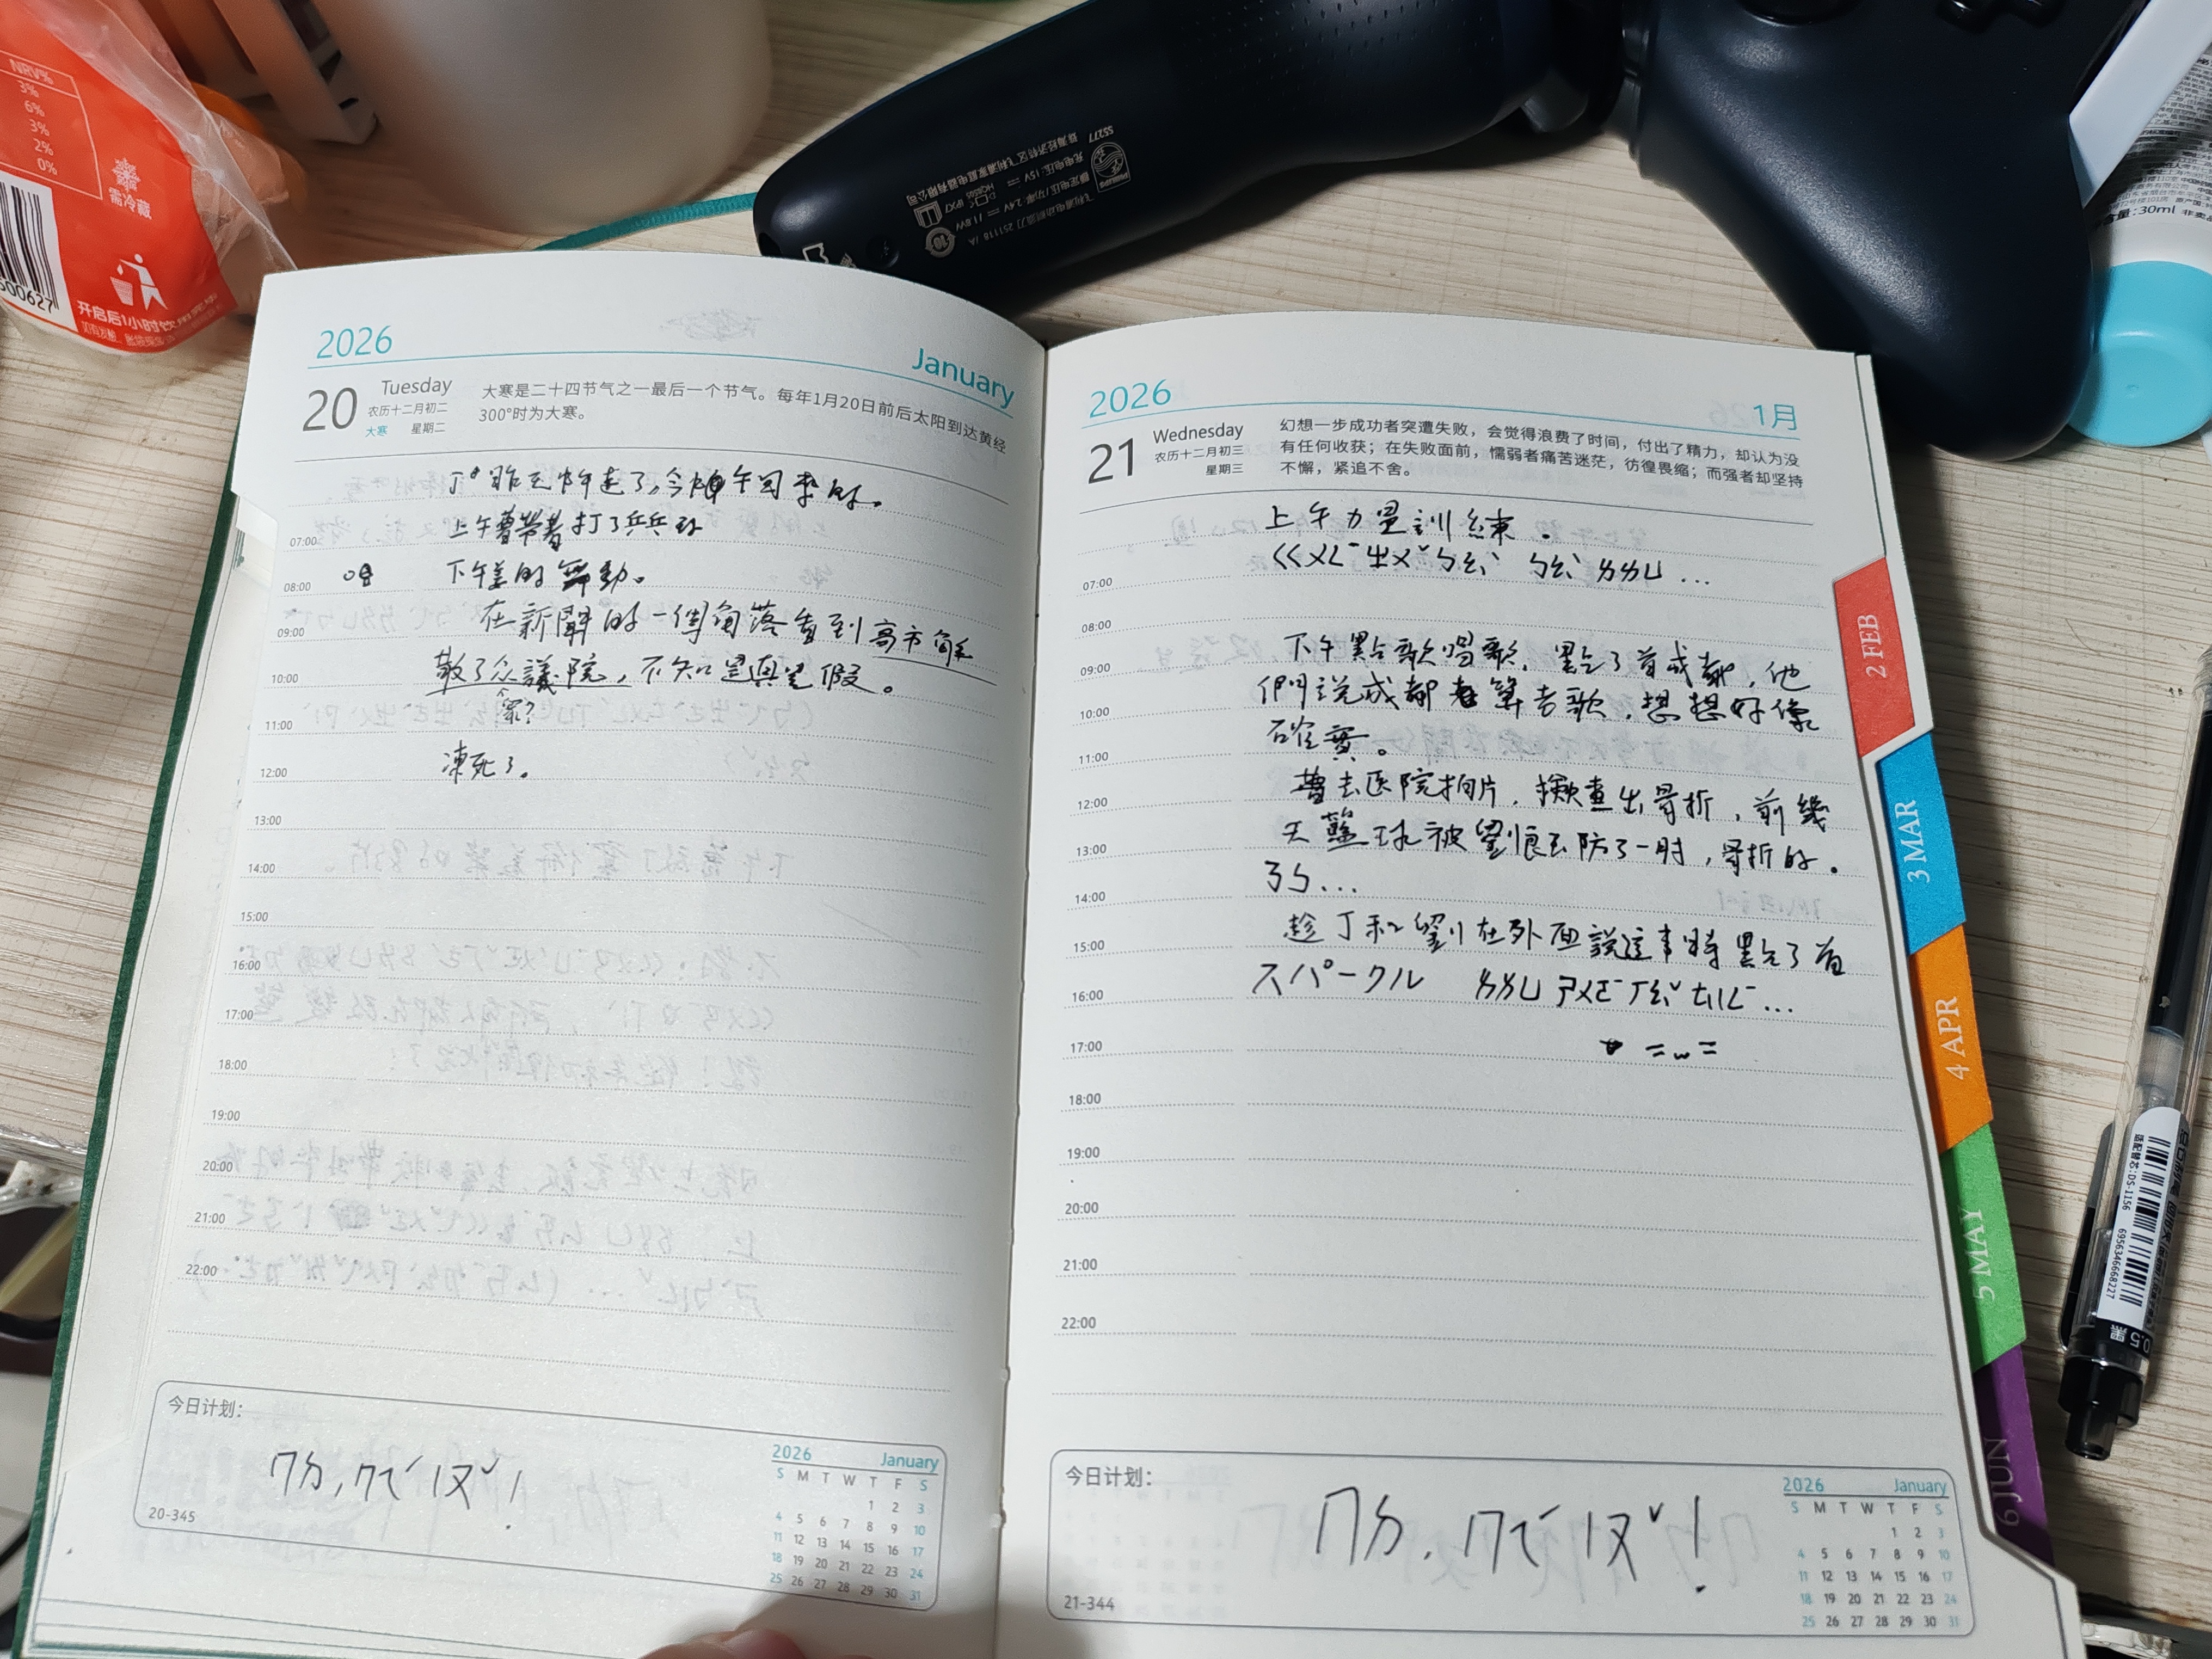 NRV%
3%
6%
3%
2%
0%
需冷藏
开启后1小时饮用完毕
500627
PHILIPS
S5277
飞利浦电动剃须刀 251118
IPX7
珠海经济特区飞利浦家庭电器有限公司
30ml
2026
January
20
Tuesday
农历十二月初二
大寒
星期二
大寒是二十四节气之一最后一个节气。每年1月20日前后太阳到达黄经
300°时为大寒。
丁昨天中午走了,今中午回來的。
上午曹帶着打了乒乓球
下午羞的舞動。
在新聞的一個角落看到高市解
散了众議院,不知是真是假。
眾?
凍死了。
07:00
08:00
09:00
10:00
11:00
12:00
13:00
14:00
15:00
16:00
17:00
18:00
19:00
20:00
21:00
22:00
今日计划:
ㄇㄌ,ㄇㄟˊㄧㄡˇ!
20-345
2026
January
S M T W T F S
1 2 3
4 5 6 7 8 9 10
11 12 13 14 15 16 17
18 19 20 21 22 23 24
25 26 27 28 29 30 31
2026
1月
21
Wednesday
农历十二月初三
星期三
幻想一步成功者突遭失败,会觉得浪费了时间,付出了精力,却认为没
有任何收获;在失败面前,懦弱者痛苦迷茫,彷徨畏缩;而强者却坚持
不懈,紧追不舍。
上午力量訓練。
ㄍㄨㄥ ㄓㄨˇ ㄅㄠˋ ㄅㄠˋ ㄞㄞㄩ...
下午點歌唱歌,點了首成都,他
們說成都老算老歌,想想好像
確實。
曹去医院拍片,檢查出骨折,前幾
天籃球被劉恨去防了一肘,骨折的。
ㄋㄢ...
趁丁和劉在外面說這事時點了首
スパークル ㄞㄞㄩ ㄕㄨㄛ ㄒㄠˇ ㄊㄧㄥ...
=w=
07:00
08:00
09:00
10:00
11:00
12:00
13:00
14:00
15:00
16:00
17:00
18:00
19:00
20:00
21:00
22:00
今日计划:
ㄇㄌ,ㄇㄟˊㄧㄡˇ!
21-344
2026
January
S M T W T F S
1 2 3
4 5 6 7 8 9 10
11 12 13 14 15 16 17
18 19 20 21 22 23 24
25 26 27 28 29 30 31
2 FEB
3 MAR
4 APR
5 MAY
6 JUN
适配替芯:DS-1156
6956346668227
黑 0.5